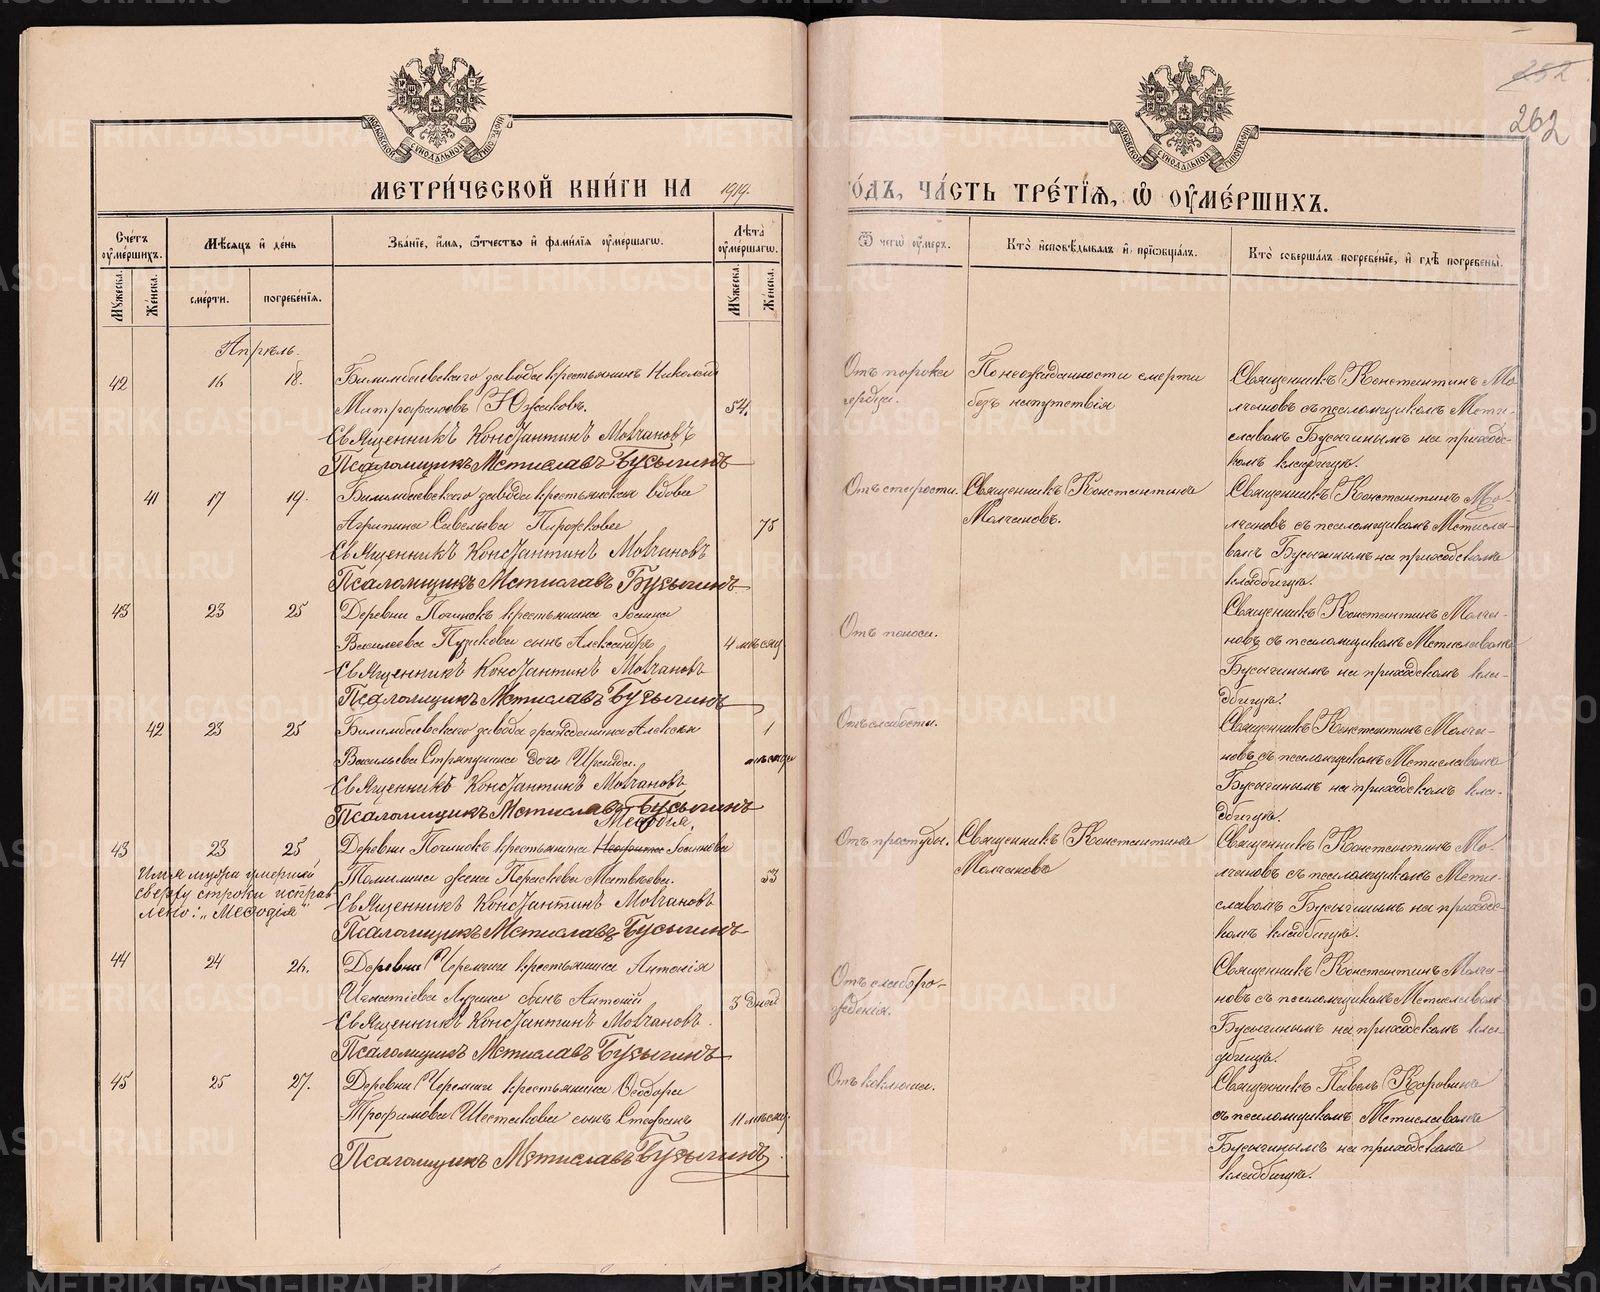 252
262
МЕТРИ́ЧЕСКОЙ КНИ́ГИ НА 1919.
ГО́ДЪ, ЧА́СТЬ ТРЕ́ТІѦ, Ѡ҆ ОУ҆МЕ́РШИХЪ.
Сче́тъ оу҆ме́ршихъ.
Мѣ́сѧцъ и҆ де́нь
Зва́нїе, и҆́мѧ, ѻ҆́тчество и҆ фами́лїѧ оу҆ме́ршагѡ.
Лѣ́та оу҆ме́ршагѡ.
Ѿ чегѡ̀ оу҆́меръ.
Кто̀ и҆сповѣ́дывалъ и҆ прїѡбща́лъ.
Кто̀ соверша́лъ погребе́нїе, и҆ гдѣ̀ погребены̀.
Мꙋ́жеска.
Же́нска.
сме́рти.
погребе́нїѧ.
Мꙋ́жеска.
Же́нска.
Апрѣль.
42 16 18. Билимбаевскаго завода крестьянинъ Николай
Митрофановъ Южаковъ. 54.
Священникъ Константинъ Молчановъ
Псаломщикъ Мстиславъ Бусыгинъ
Отъ порока
сердца.
По неожиданности смерти
безъ напутствія
Священникъ Константинъ Мо-
лчановъ съ псаломщикомъ Мсти-
славомъ Бусыгинымъ на приходс-
комъ кладбищѣ.
41 17 19. Билимбаевскаго завода крестьянская вдова
Агрипина Савельева Пирожкова 75
Священникъ Константинъ Молчановъ
Псаломщикъ Мстиславъ Бусыгинъ
Отъ старости.
Священникъ Константинъ
Молчановъ.
Священникъ Константинъ Мо-
лчановъ съ псаломщикомъ Мстисла-
вомъ Бусыгинымъ на приходскомъ
кладбищѣ.
43 23 25 Деревни Починокъ крестьянина
Васильева сынъ Александръ 4 мѣсяц
Священникъ Константинъ Молчановъ
Псаломщикъ Мстиславъ Бусыгинъ
Отъ поноса.
Священникъ Константинъ Молча-
новъ съ псаломщикомъ Мстиславомъ
Бусыгинымъ на приходскомъ кла-
дбищѣ.
42 23 25 Билимбаевскаго завода гражданина Алексѣя 1
Васильева Стряпунина дочь Ираида. мѣсяца
Священникъ Константинъ Молчановъ
Псаломщикъ Мстиславъ Бусыгинъ
Отъ слабости.
Священникъ Константинъ Молча-
новъ съ псаломщикомъ Мстиславомъ
Бусыгинымъ на приходскомъ кла-
дбищѣ.
Меѳодія,
43 23 25 Деревни Починокъ крестьянина
Томилина жена Параскева Матвѣева. 53
Имя мужа умершей
сверху строки исправ
лено: „Меѳодія"
Священникъ Константинъ Молчановъ
Псаломщикъ Мстиславъ Бусыгинъ
Отъ простуды.
Священникъ Константинъ
Молчановъ
Священникъ Константинъ Мо-
лчановъ съ псаломщикомъ Мсти-
славомъ Бусыгинымъ на приходс-
комъ кладбищѣ.
44 24 26. Деревни Черемши крестьянина Антонія
Игнатіева Лузина сынъ Антоній 3 дней
Священникъ Константинъ Молчановъ.
Псаломщикъ Мстиславъ Бусыгинъ
Отъ слаборо-
жденія.
Священникъ Константинъ Молча-
новъ съ псаломщикомъ Мстиславомъ
Бусыгинымъ на приходскомъ кла-
дбищѣ.
45 25 27. Деревни Черемши крестьянина Ѳеодора
Трофимова Шестакова сынъ Стефанъ 11 мѣсяц.
Псаломщикъ Мстиславъ Бусыгинъ
Отъ коклюша.
Священникъ Павелъ Коровинъ
съ псаломщикомъ Мстиславомъ
Бусыгинымъ на приходскомъ
кладбищѣ.
METRIKI.GASO-URAL.RU